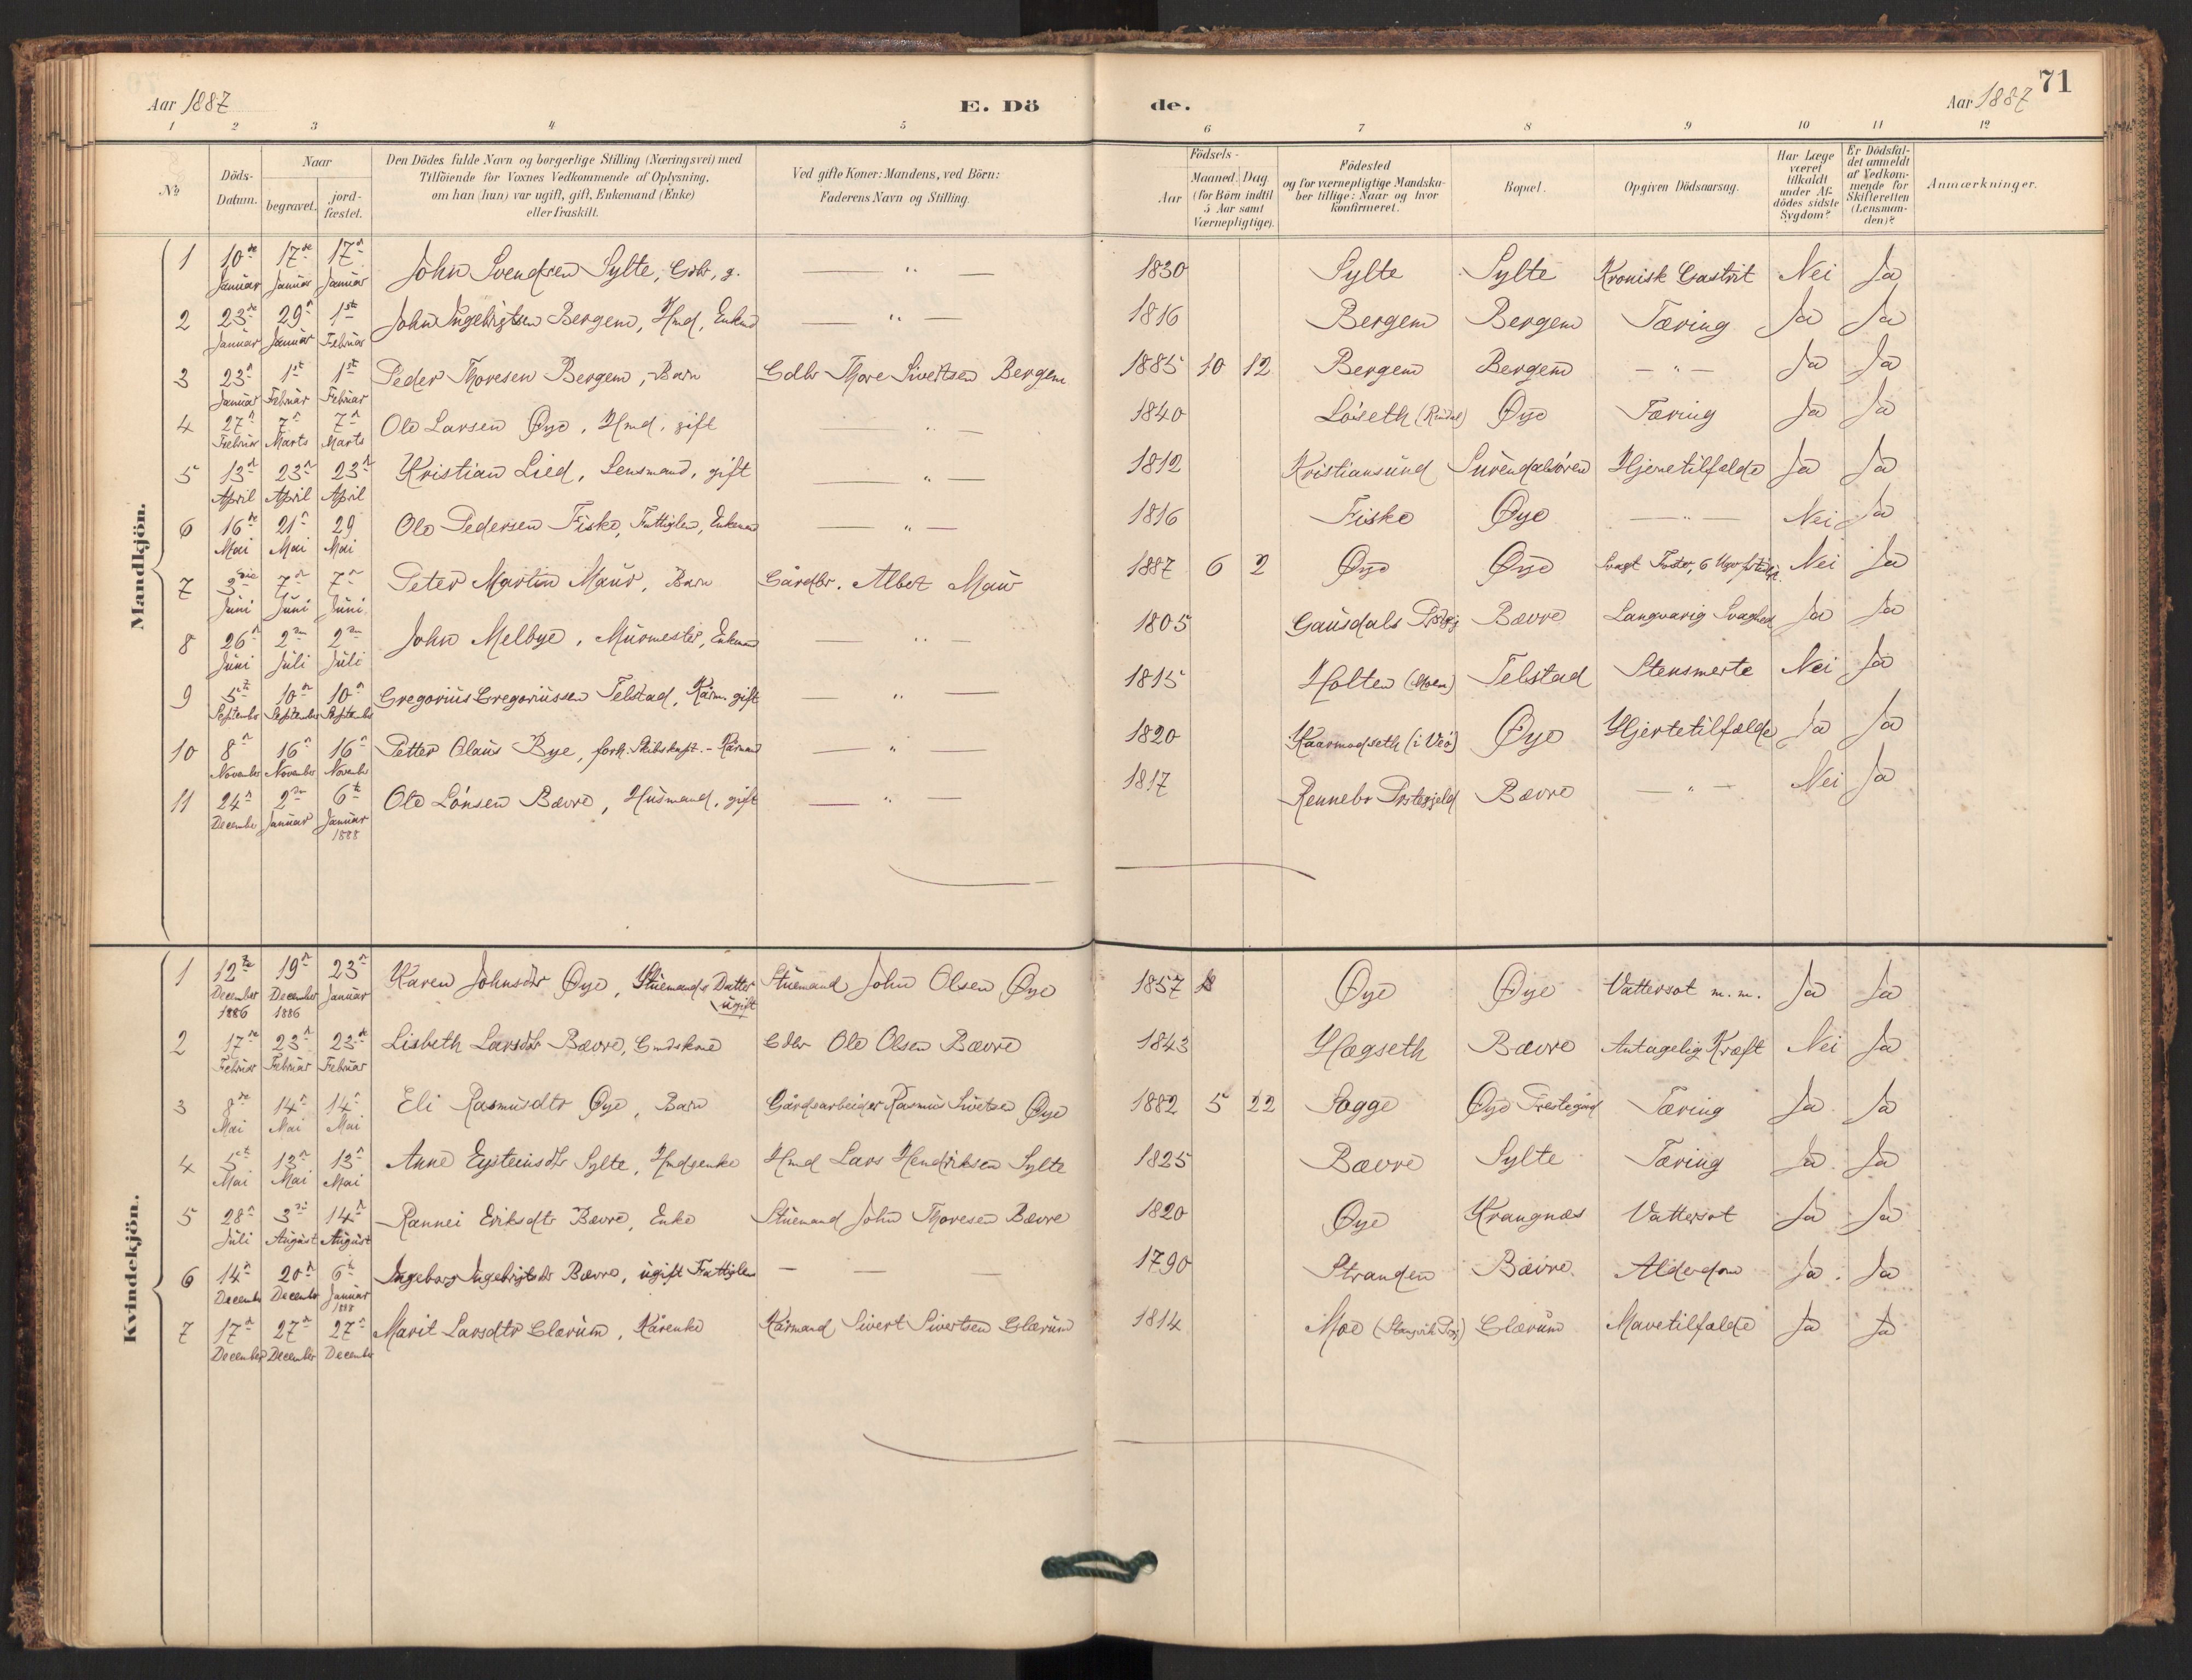 71
Aar 1887 E. Döde. Aar 1887
1 2 3 4 5 6 7 8 9 10 11 12
No
Döds-Datum.
Naar
begravet.
jord-fæstet.
Den Dödes fulde Navn og borgerlige Stilling (Næringsvei) med
Tilföiende for Voxnes Vedkommende af Oplysning,
om han (hun) var ugift, gift, Enkemand (Enke)
eller fraskilt.
Ved gifte Koner: Mandens, ved Börn:
Faderens Navn og Stilling.
Födsels-
Aar
Maaned. Dag.
(for Börn indtil
5 Aar samt
Værnepligtige).
Födested
og for værnepligtige Mandska-
ber tillige: Naar og hvor
konfirmeret.
Bopæl.
Opgiven Dödsaarsag.
Har Læge
været
tilkaldt
under Af-
dödes sidste
Sygdom?
Er Dödsfal-
det anmeldt
af Vedkom-
mende for
Skifteretten
(Lensman-
den)?
Anmærkninger.
Mandkjön.
1 10de Januar 17de Januar 17de Januar John Svendsen Sylte, Gdbr, g. — " — 1830 Sylte Sylte Kronisk Gastrit Nei Ja
2 23de Januar 29n Januar 1ste Februar John Ingebrigtsen Bergem, Hmd, Enkmd — " — 1816 Bergem Bergem Tæring Ja Ja
3 23n Januar 1st Februar 1st Februar Peder Thoresen Bergem, Barn Gdbr Thore Sivertsen Bergem 1885 10 12 Bergem Bergem — " — Ja Ja
4 27n Februar 7n Marts 7n Marts Ole Larsen Øye, Hmd, gift — " — 1840 Löseth (Rindal) Øye Tæring Ja Ja
5 13n April 23n April 23n April Kristian Lied, Lensmand, gift — " — 1812 Kristiansund Surendalsören Hjertetilfælde Ja Ja
6 16de Mai 21n Mai 29 Mai Ole Pedersen Fiske, Fattiglem, Enkeman — " — 1816 Fiske Øye — " — Nei Ja
7 3die Juni 7n Juni 7n Juni Peter Martin Maur, Barn Gårdbr. Albert Maur 1887 6 2 Øye Øye Svagt Foster, 6 Uger Nei Ja
8 26n Juni 2den Juli 2den Juli John Melbye, Murmester, Enkemand — " — 1805 Gausdals Prstgj Bævre Langvarig Svaghed Ja Ja
9 5te September 10n September 10n September Gregorius Gregoriussen Telstad, Kårm. gift — " — 1815 Holten (Moen) Telstad Stensmerte Nei Ja
10 8n November 16n November 16n November Petter Olaus Bye, forh. Skibskapt. - Kårmand — " — 1820 Kaarmodseth (i Veö) Øye Hjertetilfælde Ja Ja
11 24n December 2den Januar 6te Januar 1888 Ole Lönsen Bævre, Husmand, gift — " — 1817 Rennebo Prstegjeld Bævre — " — Nei Ja
Kvindekjön.
1 12te December 1886 19n December 1886 23n Januar Karen Johnsdtr Øye, Stuemands Datter ugift Stuemand John Olsen Øye 1857 Øye Øye Vattersot m. m. Ja Ja
2 17de Februar 23n Februar 23de Februar Lisbeth Larsdtr Bævre, Gmdskone Gdbr Ole Olsen Bævre 1843 Hægseth Bævre Antagelig Kræft Nei Ja
3 8de Mai 14n Mai 14n Mai Eli Rasmusdtr Øye, Barn Gårdsarbeider Rasmus Sivertsen Øye 1882 5 22 Sogge Øye Prestegård Tæring Ja Ja
4 5te Mai 13n Mai 13n Mai Anne Eysteinsdtr Sylte, Hmdsenke Hmd Lars Hendriksen Sylte 1825 Bævre Sylte Tæring Ja Ja
5 28n Juli 3die August 14n August Rannei Eriksdtr Bævre, Enke Stuemand John Thoresen Bævre 1820 Øye Krangnæs Vattersot Ja Ja
6 14n December 20n December 6te Januar 1888 Ingeborg Ingebrigtsdtr Bævre, ugift Fattiglem — — — 1790 Stranden Bævre Alderdom Ja. Ja
7 17n December 27n December 27n December Marit Larsdtr Glærum, Kårenke Kårmand Sivert Sivertsen Glærum 1814 Moe (Stangvik Prg) Glærum Mavetilfælde Ja Ja